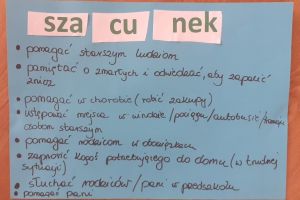 sza cu nek
• pomagać starszym ludziom
• pamiętać o zmarłych i odwiedzać, aby zapalić
znicz
• pomagać w chorobie (robić zakupy)
• ustępować miejsca w windzie/pociągu/autobusie/tramwaju
osobom starszym
• pomagać rodzicom w obowiązkach
• zaprosić kogoś potrzebującego do domu (w trudnej
sytuacji)
• słuchać rodziców/pani w przedszkolu
• pomagać pani